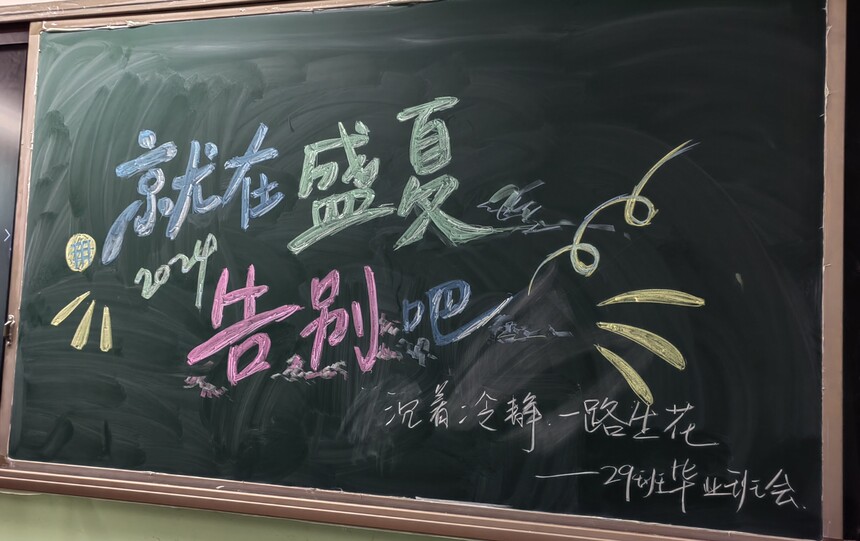 就在盛夏
2024
告别吧
沉着冷静.一路生花
——29班毕业班会.